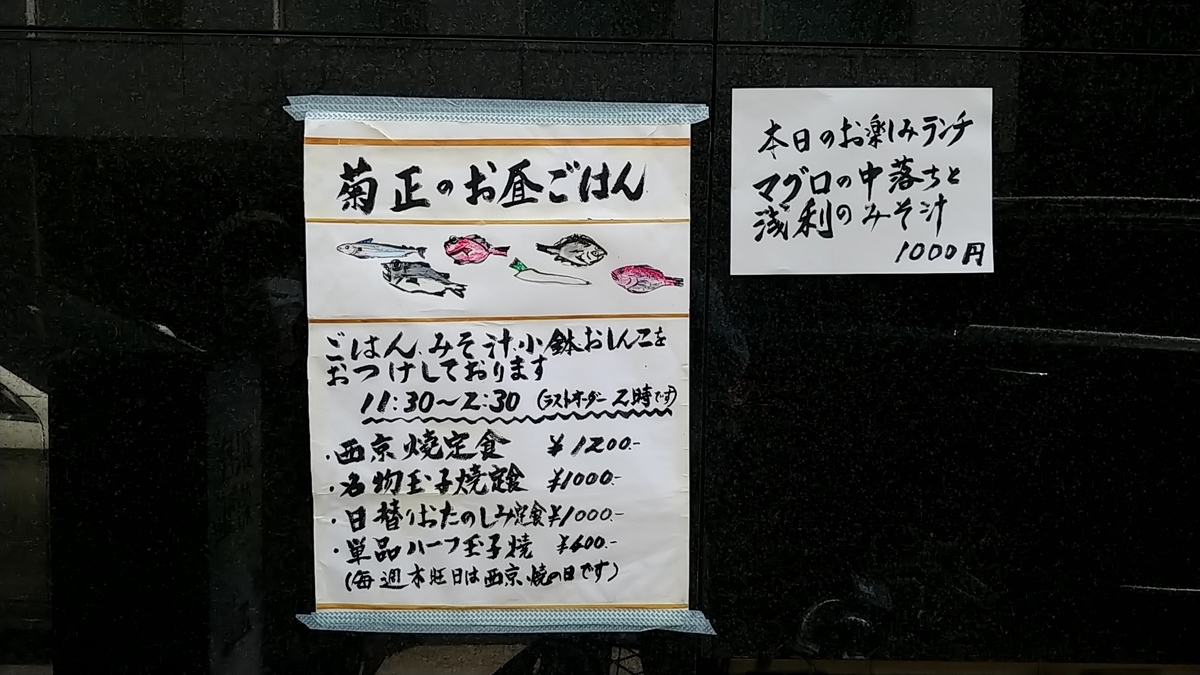 菊正のお昼ごはん
ごはん、みそ汁、小鉢おしんこを
おつけしております
11:30〜2:30 (ラストオーダー 2時です)
・西京焼定食 ¥1200-
・名物玉子焼定食 ¥1000-
・日替りおたのしみ定食 ¥1000-
・単品ハーフ玉子焼 ¥600-
(毎週木旺日は西京焼の日です)
本日のお楽しみランチ
マグロの中落ちと
浅利のみそ汁
1000円